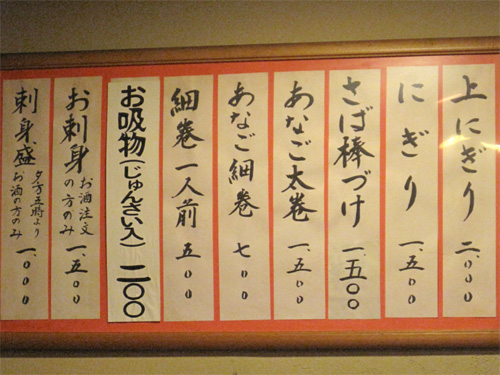 上にぎり 二、〇〇〇
にぎり 一、五〇〇
さば棒づけ 一、五〇〇
あなご太巻 一、五〇〇
あなご細巻 七〇〇
細巻一人前 五〇〇
お吸物(じゅんさい入) 二〇〇
お刺身 お酒注文の方のみ 一、五〇〇
刺身盛 夕方五時より お酒の方のみ 一、〇〇〇